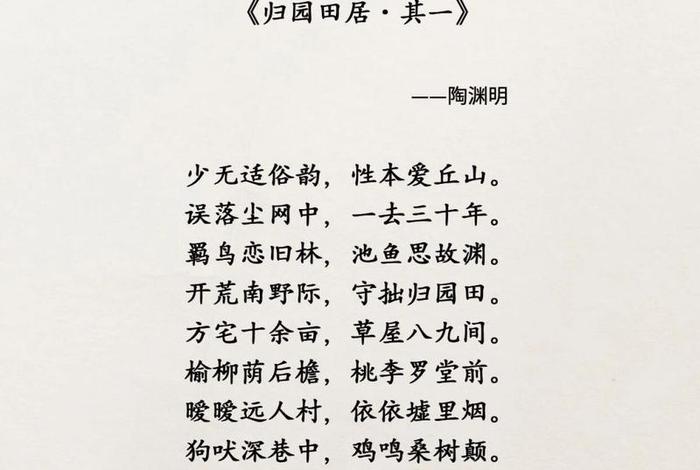 《归园田居·其一》
——陶渊明
少无适俗韵，性本爱丘山。
误落尘网中，一去三十年。
羁鸟恋旧林，池鱼思故渊。
开荒南野际，守拙归园田。
方宅十余亩，草屋八九间。
榆柳荫后檐，桃李罗堂前。
暧暧远人村，依依墟里烟。
狗吠深巷中，鸡鸣桑树颠。